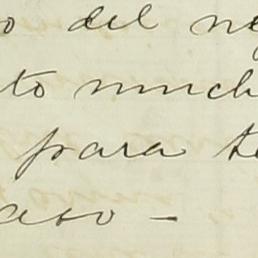 o del ne
to much
para te
aso –